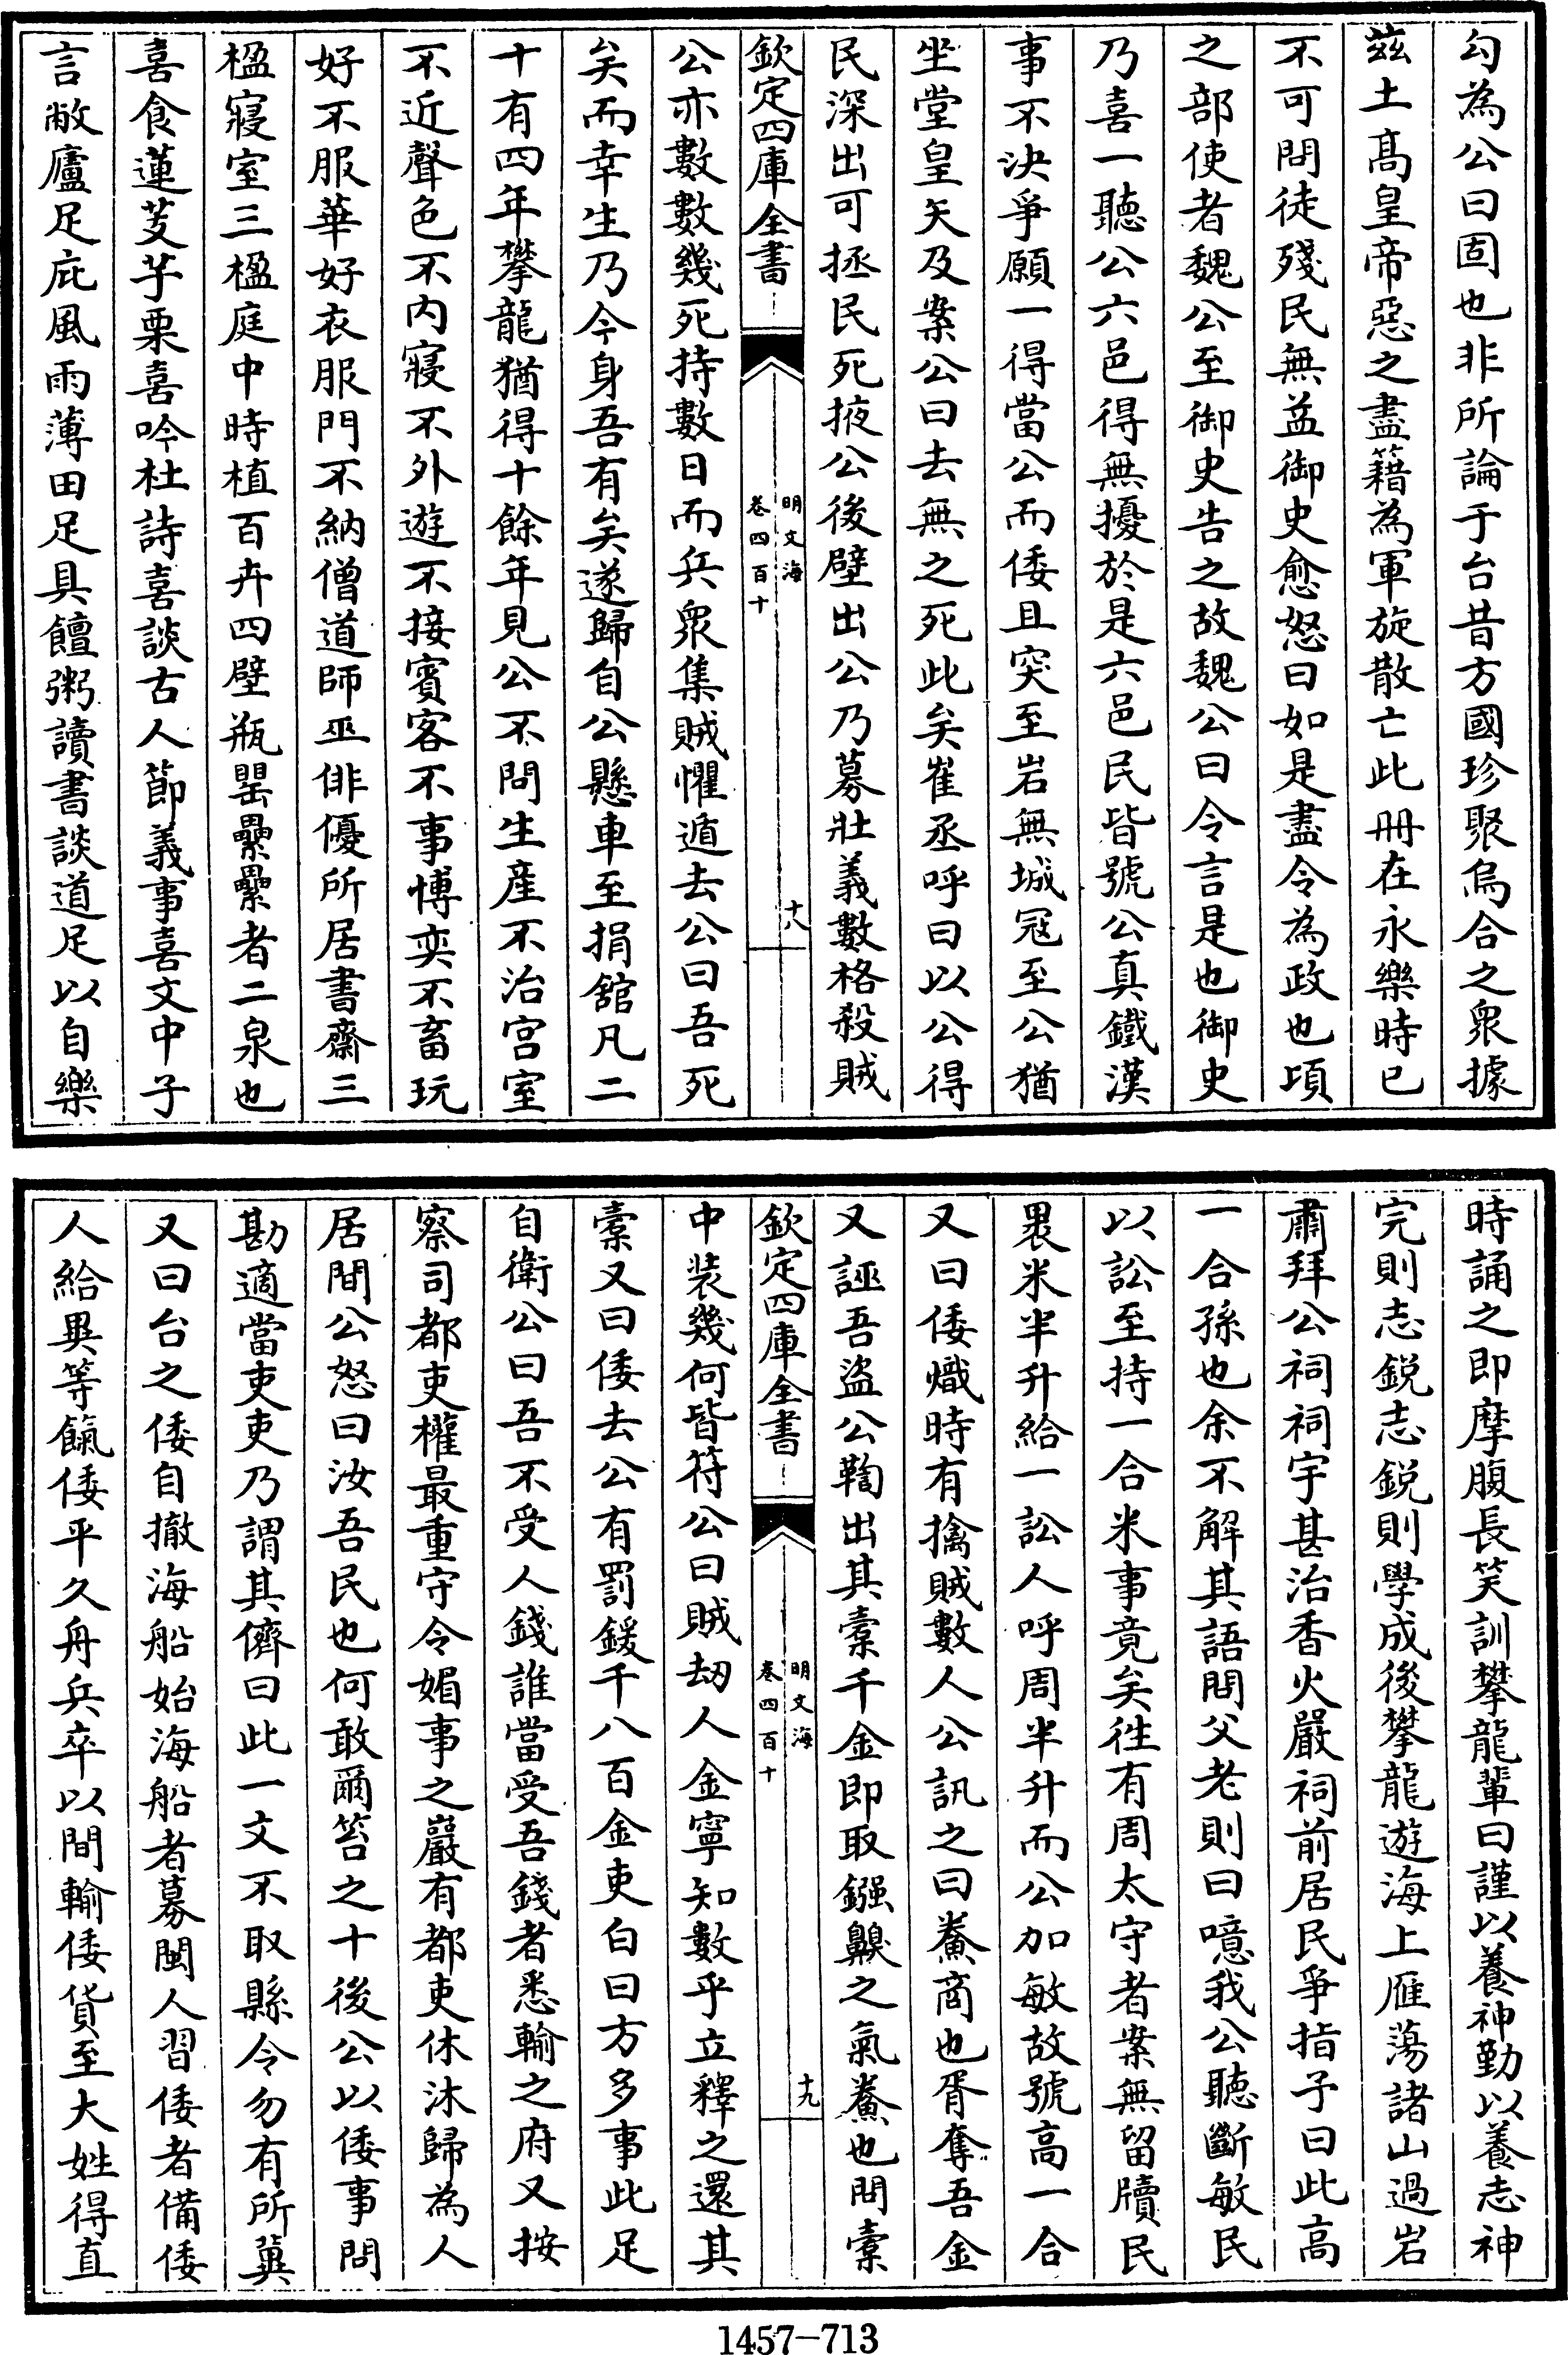 勾為公曰固也非所論于台昔方國珍聚烏合之衆據
茲土髙皇帝惡之盡籍為軍旋散亡此冊在永樂時已
不可問徒殘民無益御史愈怒曰如是盡令為政也項
之部使者魏公至御史告之故魏公曰令言是也御史
乃喜一聽公六邑得無擾於是六邑民皆號公真鐵漢
事不決爭願一得當公而倭且突至岩無城冦至公猶
坐堂皇矢及案公曰去無之死此矣崔丞呼曰以公得
民深出可拯民死掖公後壁出公乃募壯義數格殺賊
欽定四庫全書
明文海
卷四百十
十八
公亦數數幾死持數日而兵衆集賊懼遁去公曰吾死
矣而幸生乃今身吾有矣遂歸自公懸車至捐舘凡二
十有四年攀龍猶得十餘年見公不問生産不治宫室
不近聲色不内寢不外遊不接賓客不事博奕不畜玩
好不服華好衣服門不納僧道師巫俳優所居書齋三
楹寢室三楹庭中時植百卉四壁瓶罌纍纍者二泉也
喜食蓮芡芋栗喜吟杜詩喜談古人節義事喜文中子
言敝廬足庇風雨薄田足具饘粥讀書談道足以自樂
時誦之即摩腹長笑訓攀龍輩曰謹以養神勤以養志神
完則志鋭志鋭則學成後攀龍遊海上雁蕩諸山過岩
肅拜公祠祠宇甚治香火嚴祠前居民爭指予曰此高
一合孫也余不解其語問父老則曰噫我公聽斷敏民
以訟至持一合米事竟矣徃有周太守者案無留牘民
裹米半升給一訟人呼周半升而公加敏故號高一合
又曰倭熾時有擒賊數人公訊之曰鯗商也胥奪吾金
又誣吾盜公鞫出其橐千金即取鏹齅之氣鯗也問橐
欽定四庫全書
明文海
卷四百十
十九
中裝幾何皆符公曰賊刼人金寧知數乎立釋之還其
橐又曰倭去公有罰鍰千八百金吏白曰方多事此足
自衛公曰吾不受人錢誰當受吾錢者悉輸之府又按
察司都吏權最重守令媚事之嚴有都吏休沐歸為人
居間公怒曰汝吾民也何敢爾笞之十後公以倭事問
勘適當吏吏乃謂其儕曰此一文不取縣令勿有所冀
又曰台之倭自撤海船始海船者募閩人習倭者備倭
人給異等餼倭平久舟兵卒以間輸倭貨至大姓得直
1457—713